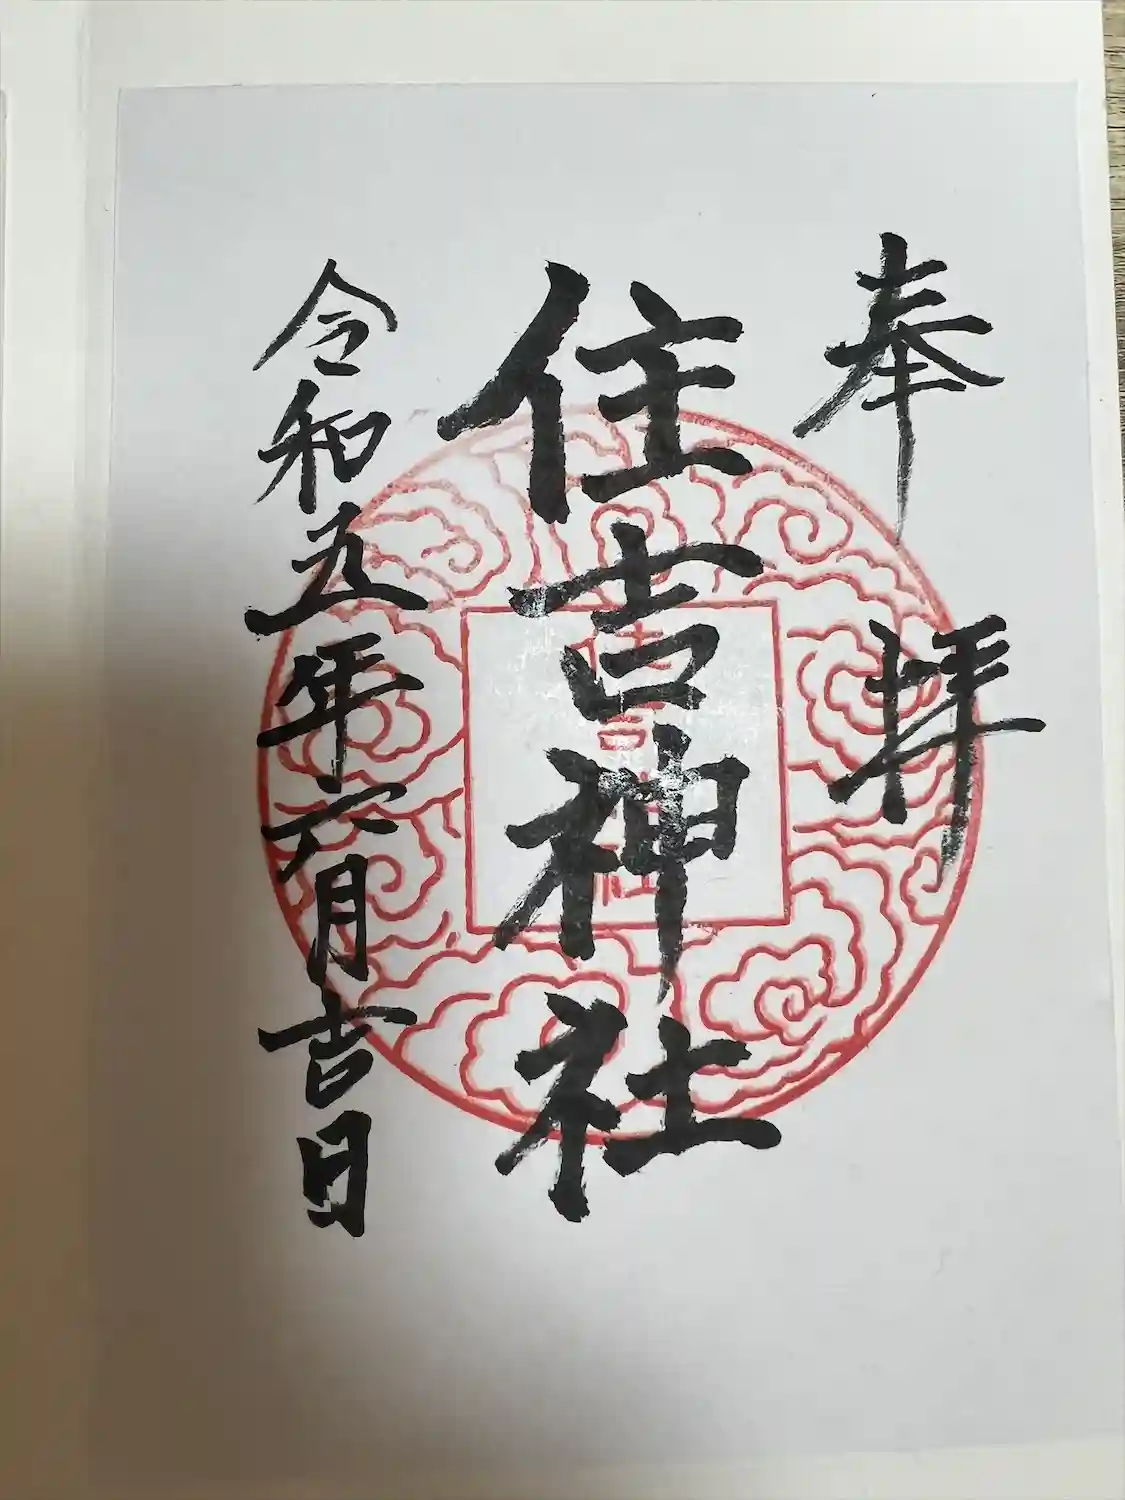 奉拝
住吉神社
令和五年六月吉日